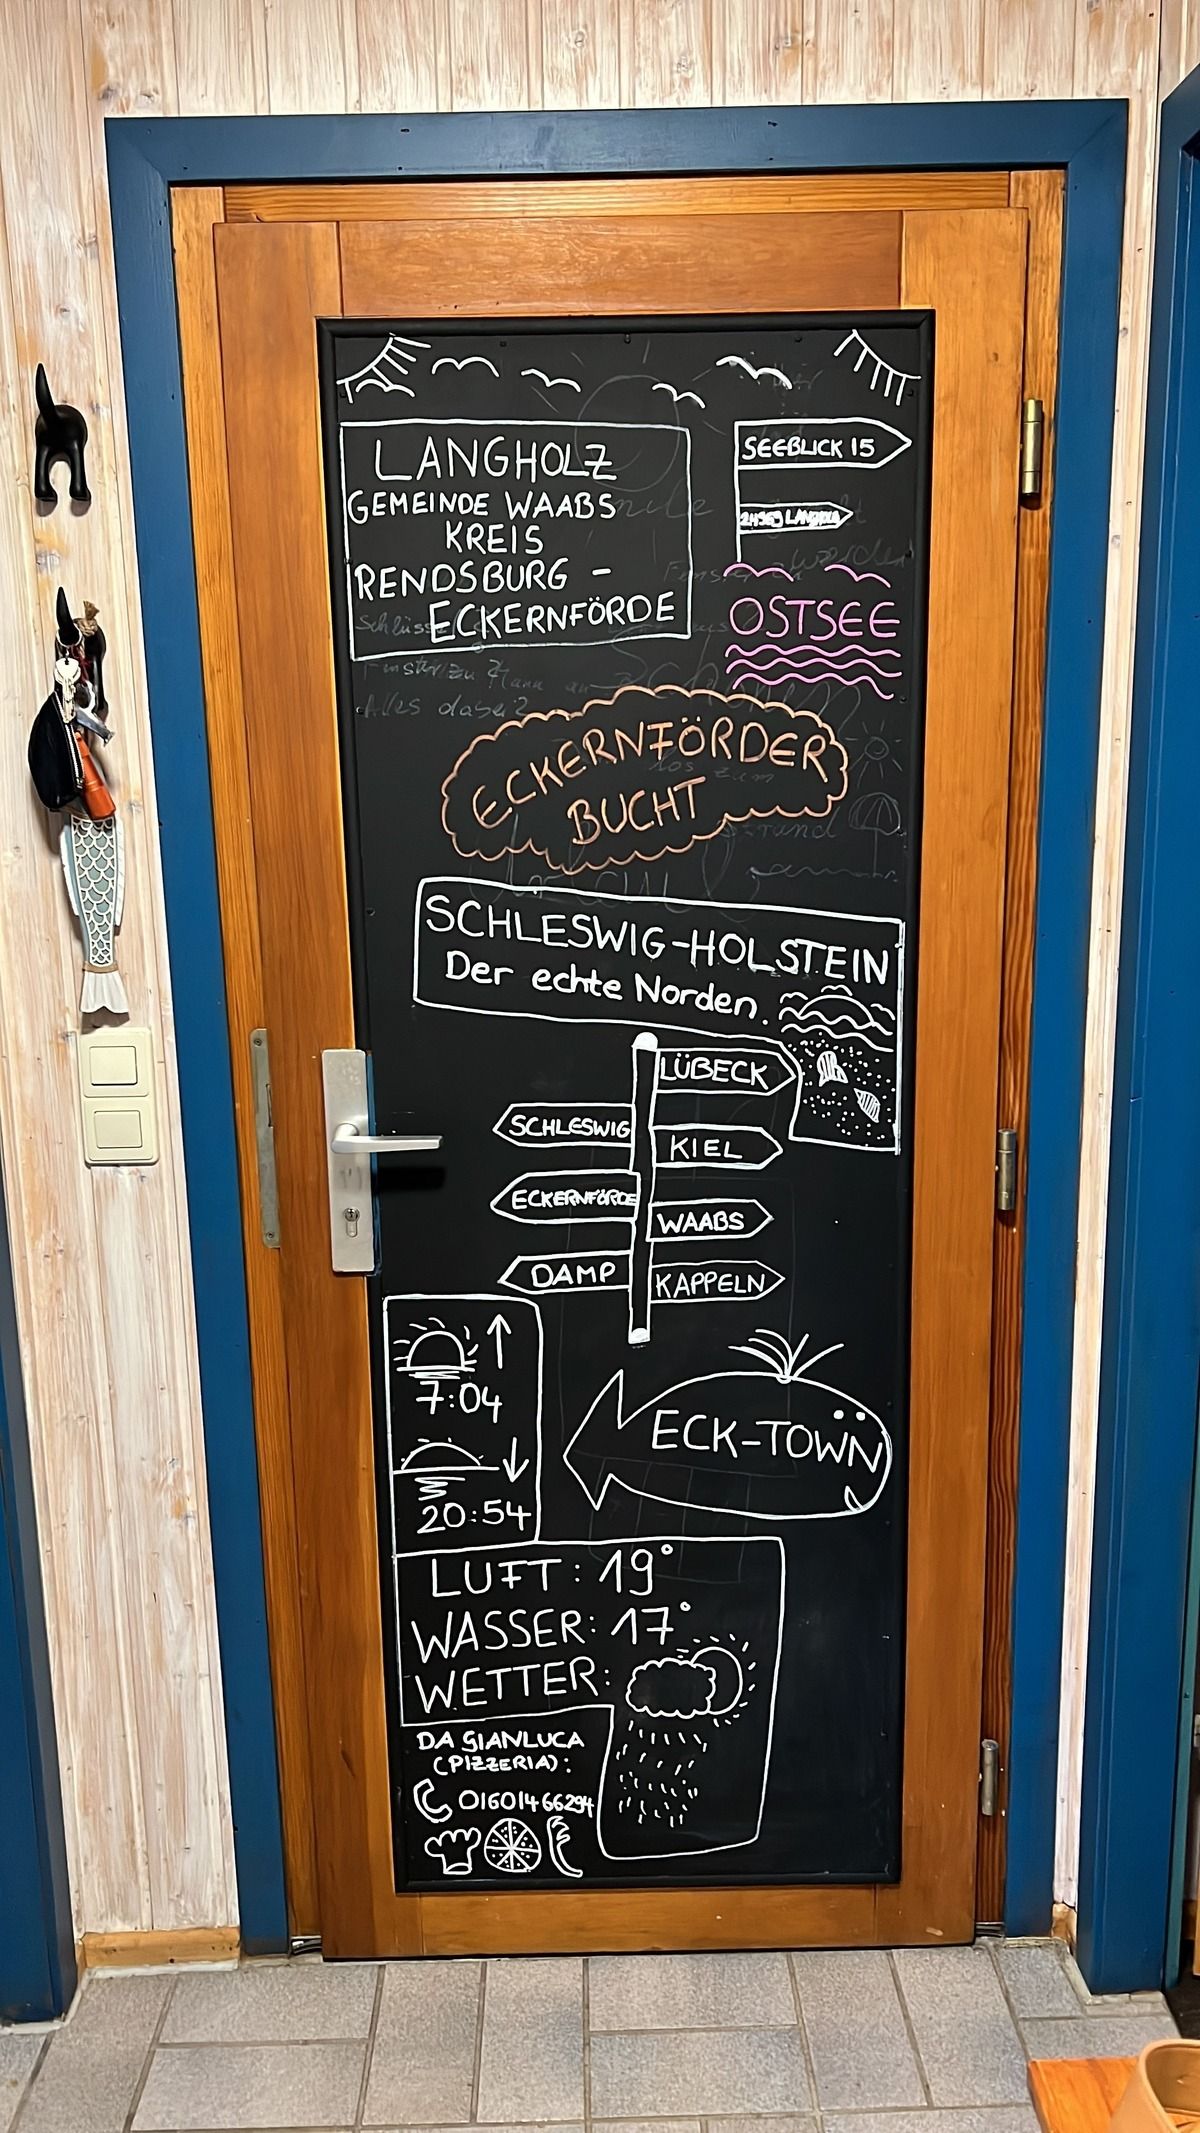 LANGHOLZ
GEMEINDE WAABS
KREIS
RENDSBURG -
ECKERNFÖRDE
SEEBLICK 15
OSTSEE
Alles dabei?
ECKERNFÖRDER
BUCHT
SCHLESWIG-HOLSTEIN
Der echte Norden.
LÜBECK
SCHLESWIG
KIEL
ECKERNFÖRDE
WAABS
DAMP
KAPPELN
7:04
20:54
ECK-TOWN
LUFT: 19°
WASSER: 17°
WETTER:
DA GIANLUCA
(PIZZERIA):
01601466294